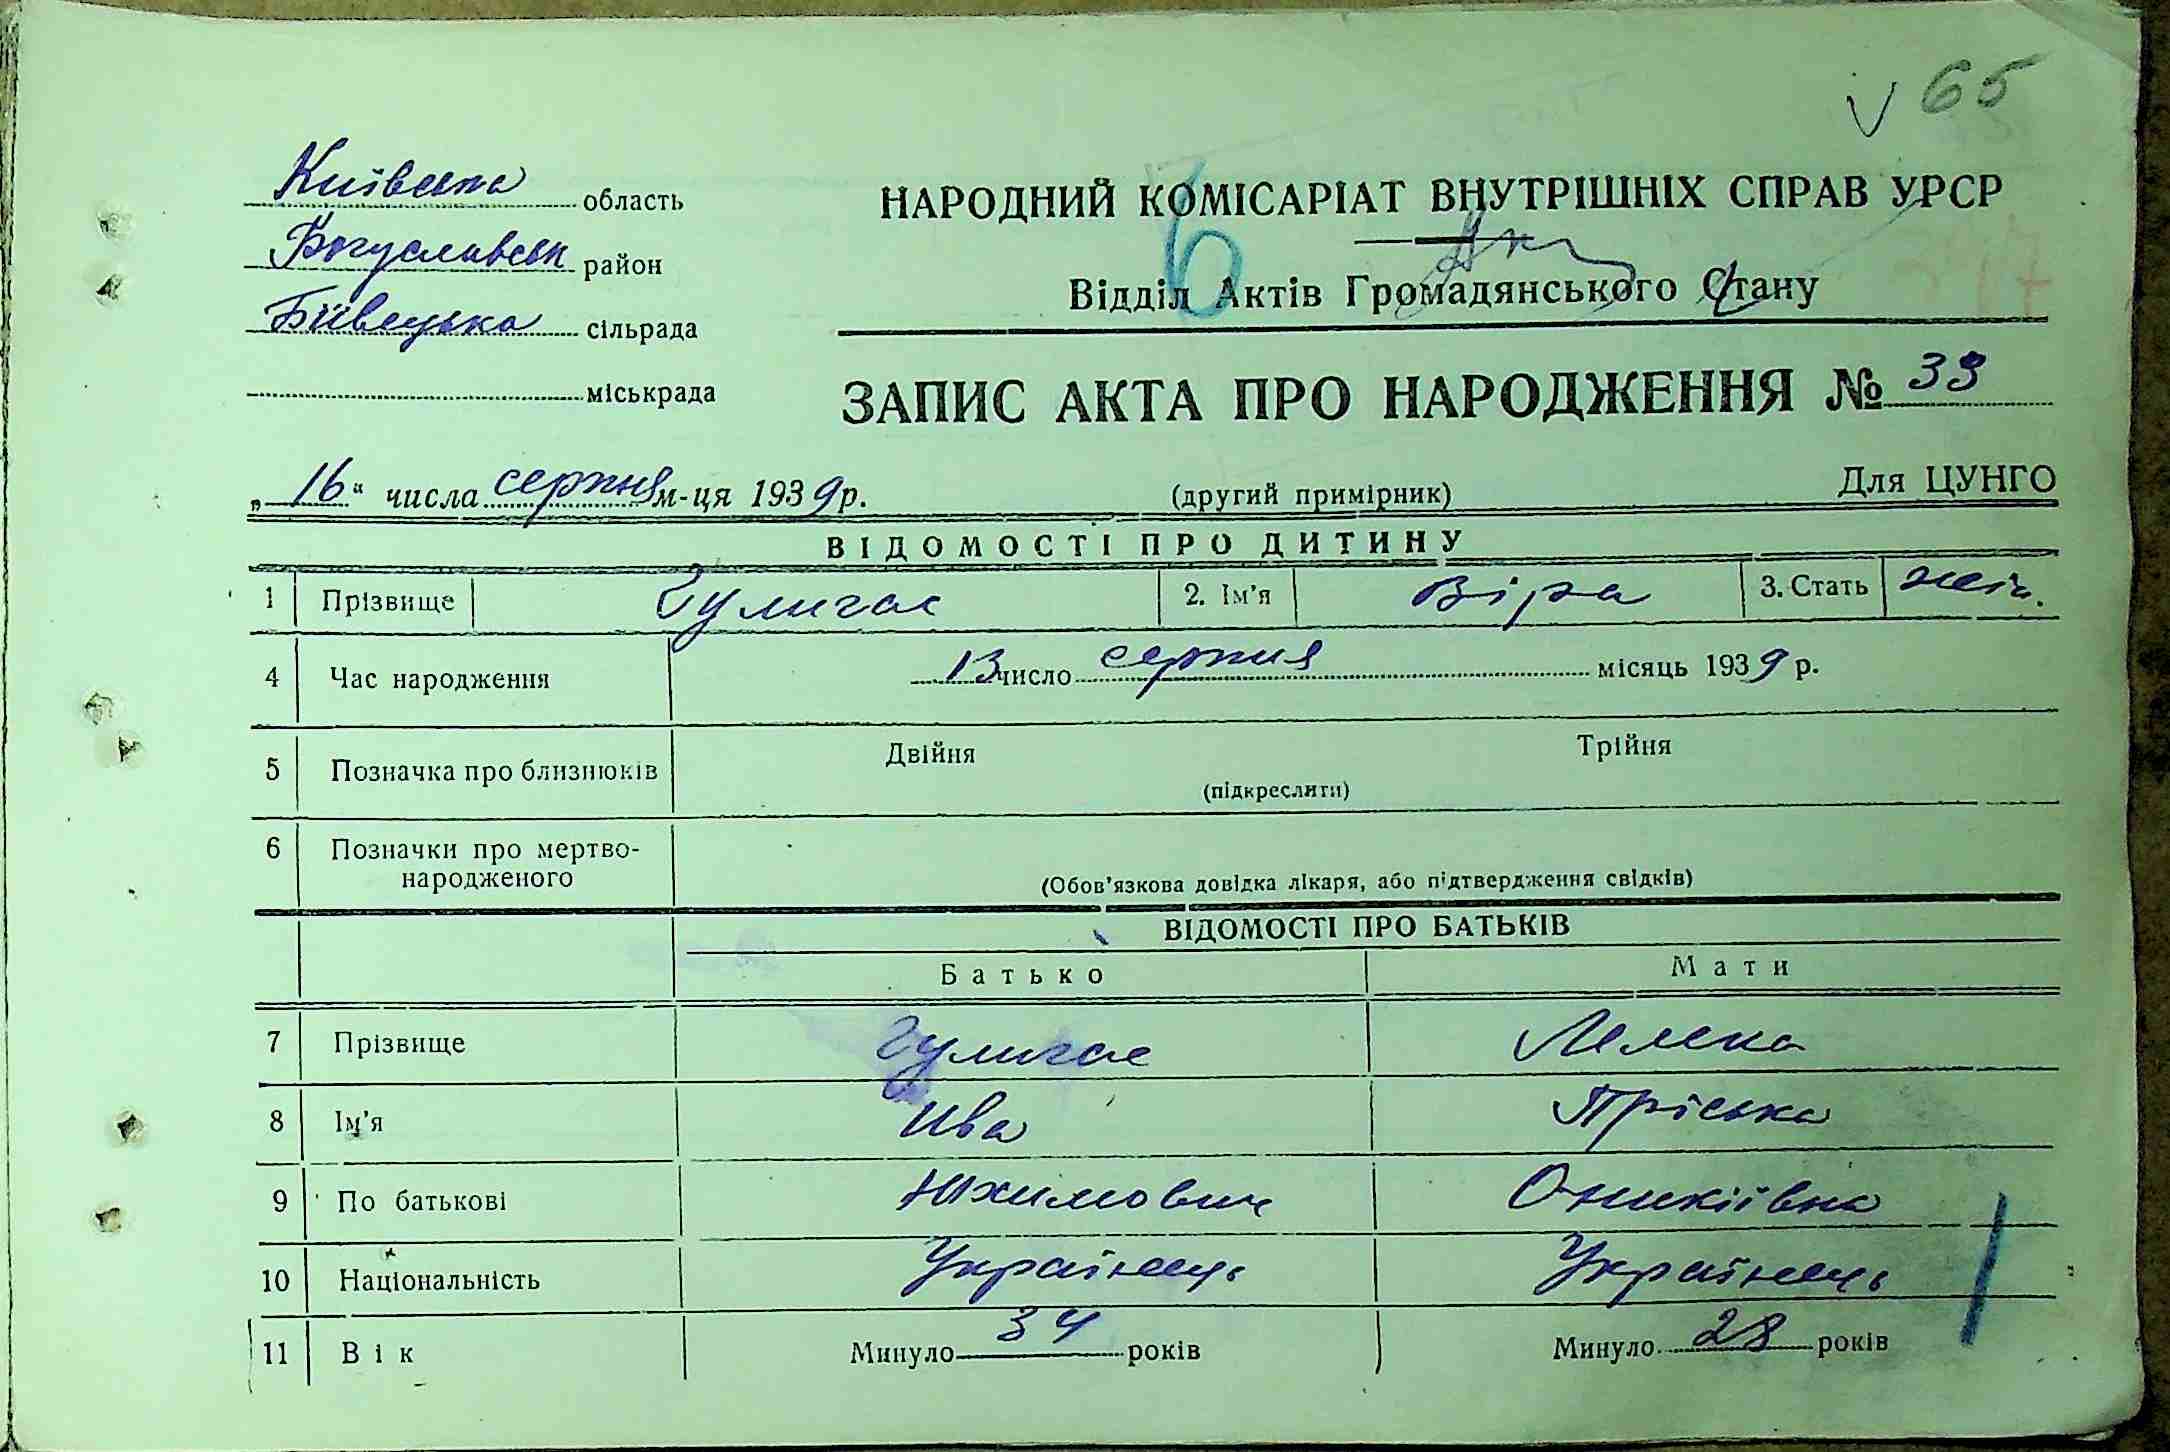 V 65
Київська область
Богуславськ район
Бівецька сільрада
міськрада
НАРОДНИЙ КОМІСАРІАТ ВНУТРІШНІХ СПРАВ УРСР
Відділ Актів Громадянського Стану
ЗАПИС АКТА ПРО НАРОДЖЕННЯ № 39
„16" числа серпня м-ця 1939 р. (другий примірник) Для ЦУНГО
ВІДОМОСТІ ПРО ДИТИНУ
1 Прізвище Гулигас 2. Ім'я Віра 3. Стать жін.
4 Час народження 13 число серпня місяць 1939 р.
5 Позначка про близнюків Двійня Трійня
(підкреслити)
6 Позначки про мертво-
народженого (Обов'язкова довідка лікаря, або підтвердження свідків)
ВІДОМОСТІ ПРО БАТЬКІВ
Батько Мати
7 Прізвище Гулигас Лелека
8 Ім'я Ива Пріська
9 По батькові Юхимович Оникіївна
10 Національність Українець Українець
11 Вік Минуло 34 років Минуло 28 років